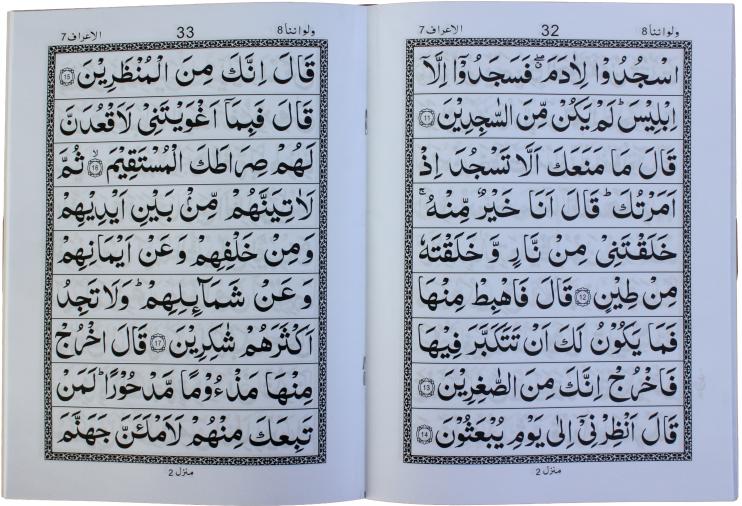 ولواننا ٨
32
الاعراف ٧
اسْجُدُوْا لِاٰدَمَ ۖۗ فَسَجَدُوْۤا اِلَّاۤ
اِبْلِیْسَ ؕ لَمْ یَكُنْ مِّنَ السّٰجِدِیْنَ ۝11
قَالَ مَا مَنَعَكَ اَلَّا تَسْجُدَ اِذْ
اَمَرْتُكَ ؕ قَالَ اَنَا خَیْرٌ مِّنْهُ ۚ
خَلَقْتَنِیْ مِنْ نَّارٍ وَّ خَلَقْتَهٗ
مِنْ طِیْنٍ ۝12 قَالَ فَاهْبِطْ مِنْهَا
فَمَا یَكُوْنُ لَكَ اَنْ تَتَكَبَّرَ فِیْهَا
فَاخْرُجْ اِنَّكَ مِنَ الصّٰغِرِیْنَ ۝13
قَالَ اَنْظِرْنِیْۤ اِلٰی یَوْمِ یُبْعَثُوْنَ ۝14
منزل 2
ولواننا ٨
33
الاعراف ٧
قَالَ اِنَّكَ مِنَ الْمُنْظَرِیْنَ ۝15
قَالَ فَبِمَاۤ اَغْوَیْتَنِیْ لَاَقْعُدَنَّ
لَهُمْ صِرَاطَكَ الْمُسْتَقِیْمَ ۝16ۙ ثُمَّ
لَاٰتِیَنَّهُمْ مِّنْۢ بَیْنِ اَیْدِیْهِمْ
وَ مِنْ خَلْفِهِمْ وَ عَنْ اَیْمَانِهِمْ
وَ عَنْ شَمَآىِٕلِهِمْ ؕ وَ لَا تَجِدُ
اَكْثَرَهُمْ شٰكِرِیْنَ ۝17 قَالَ اخْرُجْ
مِنْهَا مَذْءُوْمًا مَّدْحُوْرًا ؕ لَمَنْ
تَبِعَكَ مِنْهُمْ لَاَمْلَـَٔنَّ جَهَنَّمَ
منزل 2